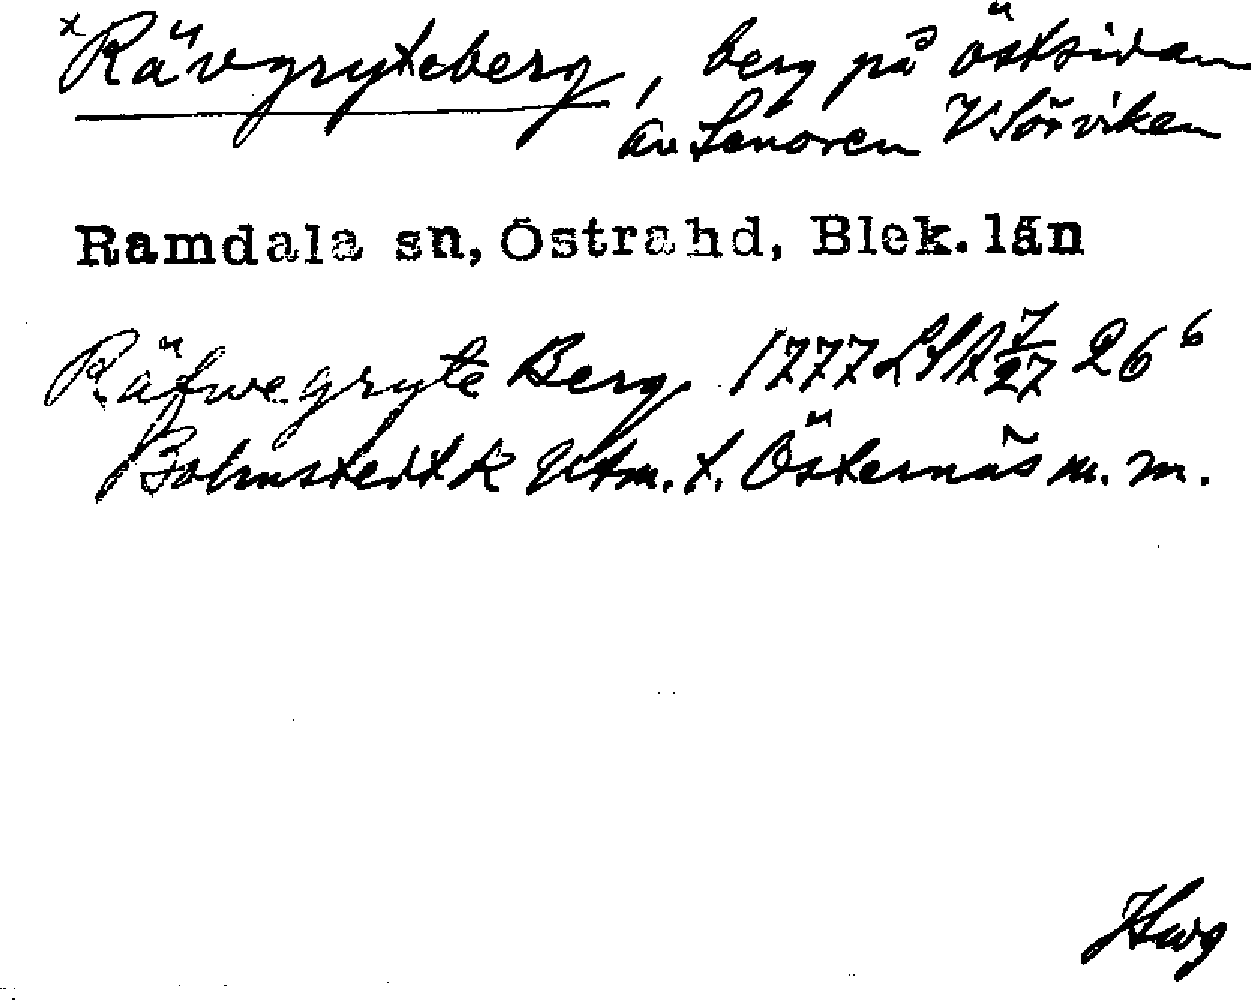 x Rävgryteberg, berg på östsidan
av Senoren V Sörviken
Ramdala sn, Östrahd, Blek. län
Räfwegryte Berg 1777 LSA 7/27 26⁶
Bohmstedt k Utm. t. Östernäs m. m.